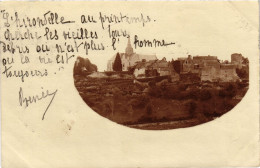 L'hirondelle au printemps
cherche les vieilles tours
débris où n'est plus l'homme
où la vie est
toujours.
Renée